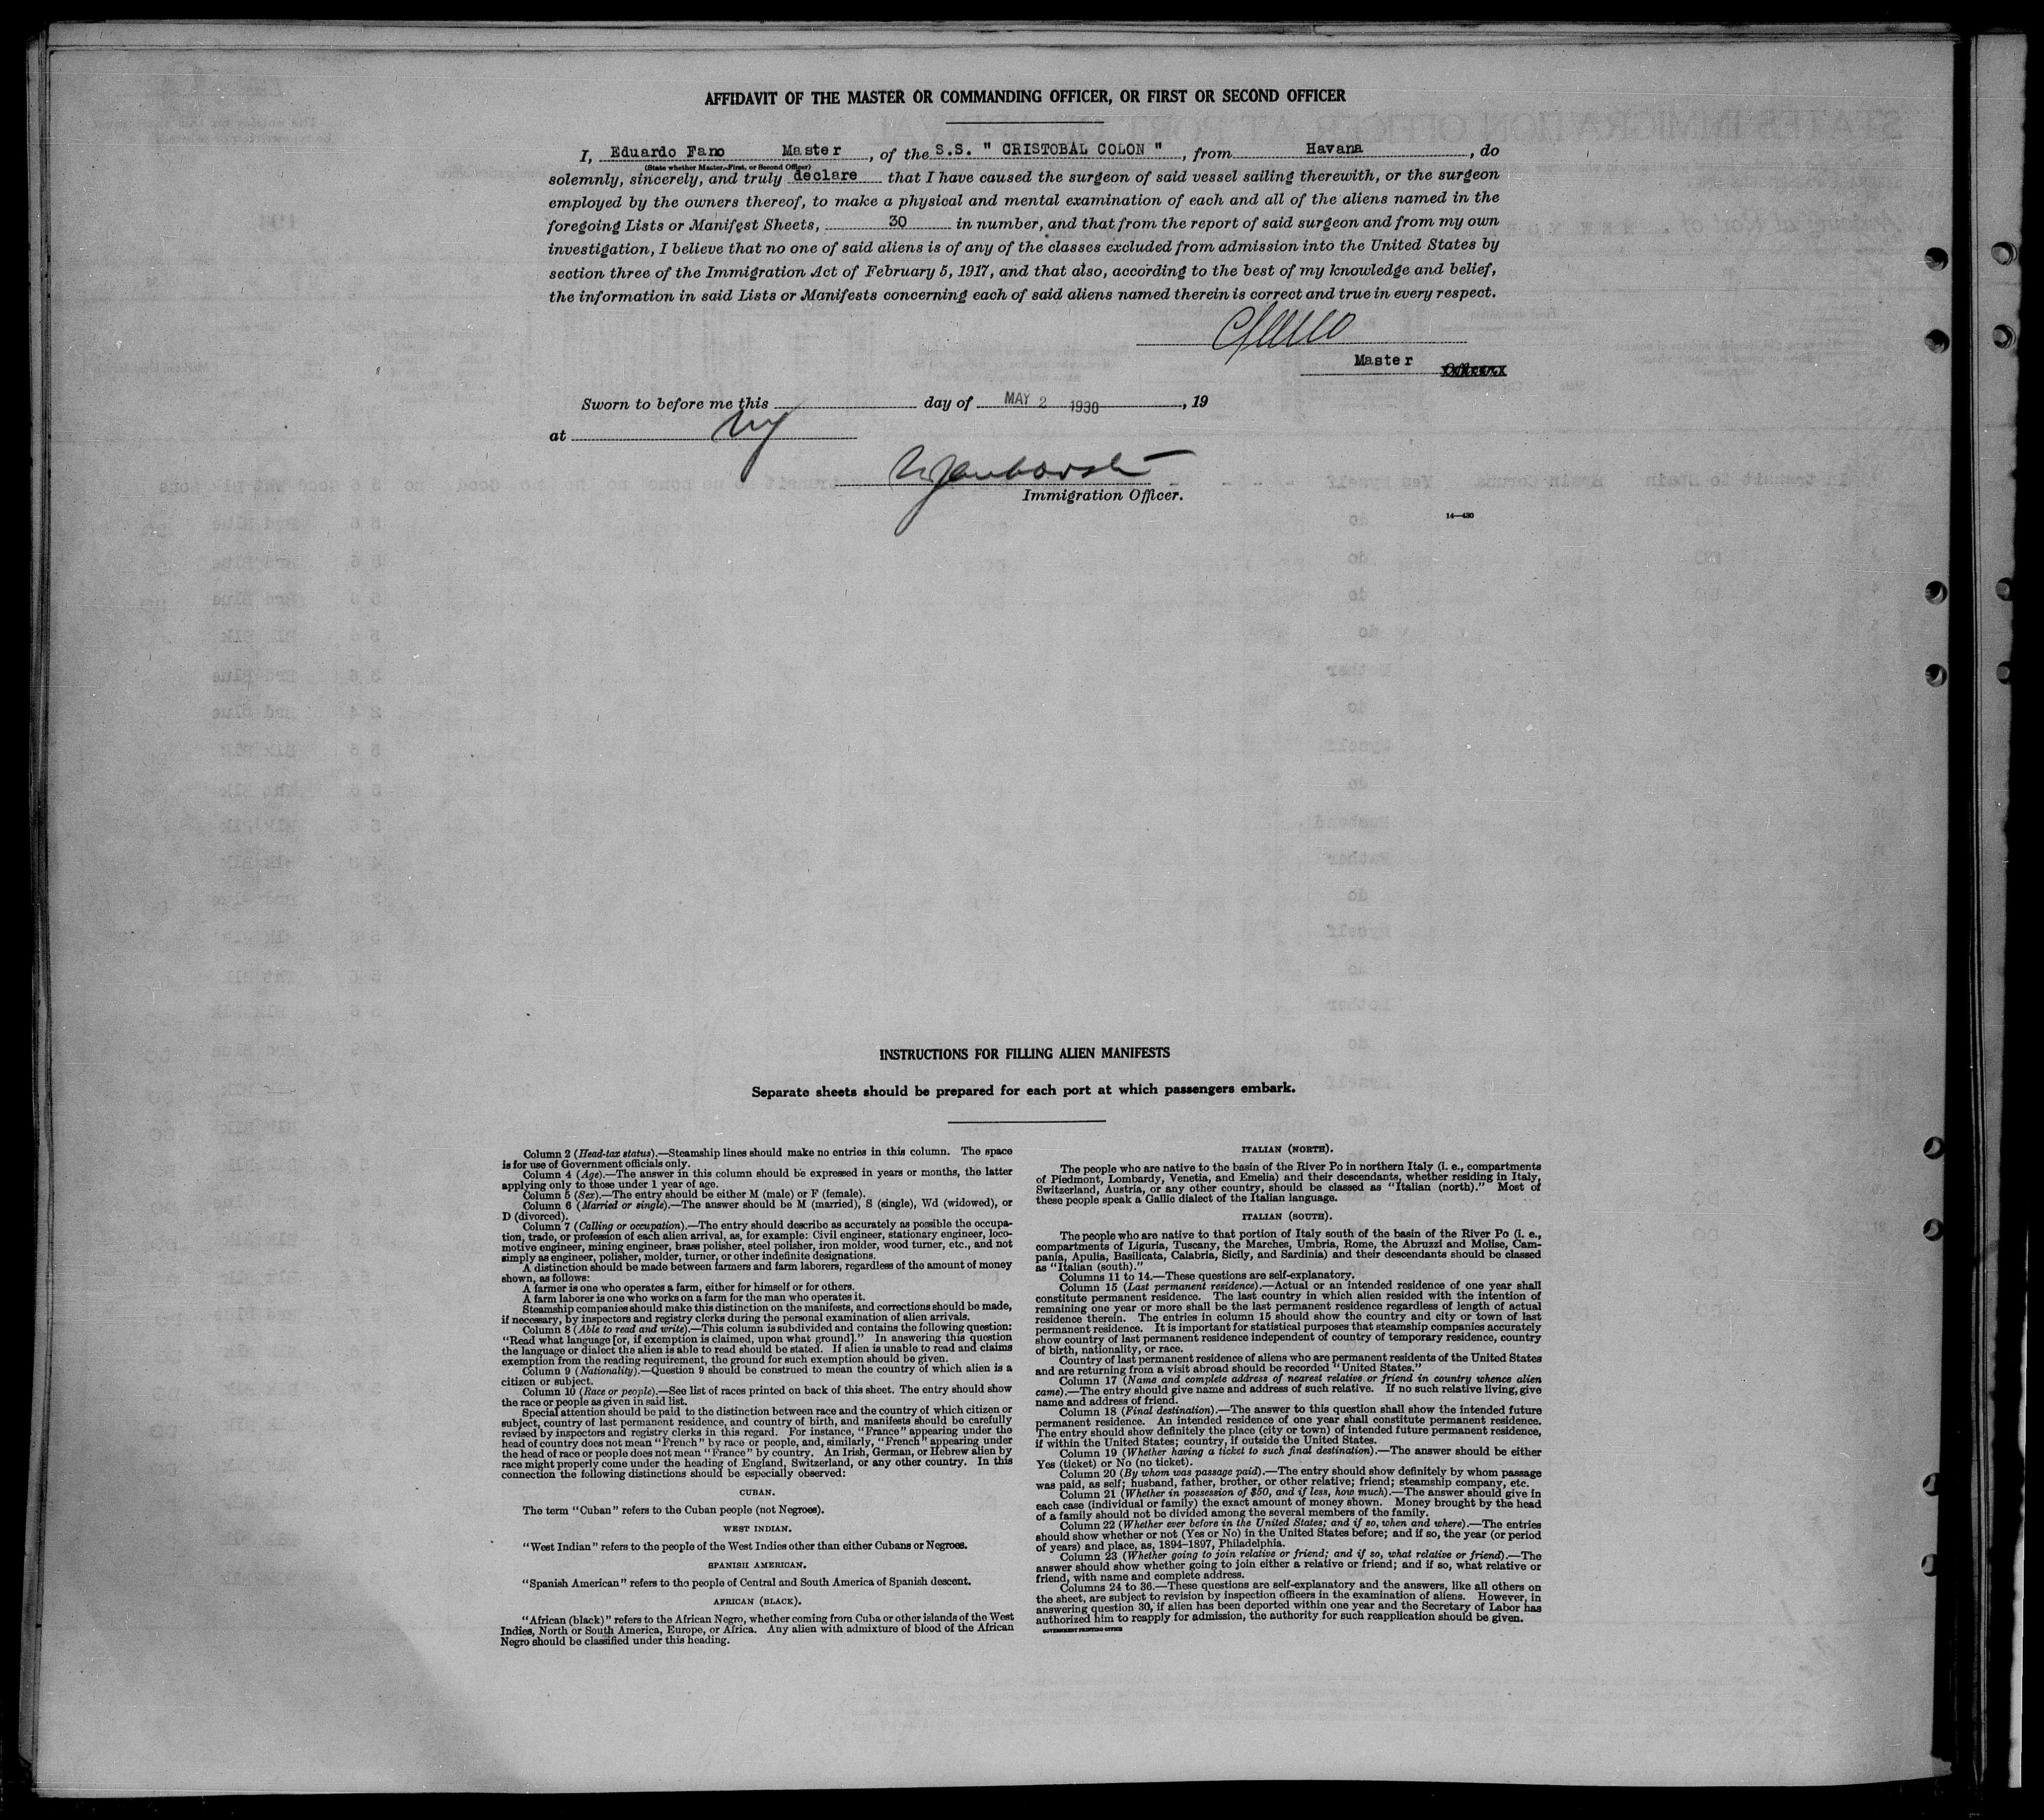 AFFIDAVIT OF THE MASTER OR COMMANDING OFFICER, OR FIRST OR SECOND OFFICER
I, Eduardo Fano Master, of the S.S. " CRISTOBAL COLON ", from Havana, do
(State whether Master, First, or Second Officer)
solemnly, sincerely, and truly declare that I have caused the surgeon of said vessel sailing therewith, or the surgeon
employed by the owners thereof, to make a physical and mental examination of each and all of the aliens named in the
foregoing Lists or Manifest Sheets, 30 in number, and that from the report of said surgeon and from my own
investigation, I believe that no one of said aliens is of any of the classes excluded from admission into the United States by
section three of the Immigration Act of February 5, 1917, and that also, according to the best of my knowledge and belief,
the information in said Lists or Manifests concerning each of said aliens named therein is correct and true in every respect.
Master Officer.
Sworn to before me this day of MAY 2 1930, 19
at NY
Immigration Officer.
14—430
INSTRUCTIONS FOR FILLING ALIEN MANIFESTS
Separate sheets should be prepared for each port at which passengers embark.
Column 2 (Head-tax status).—Steamship lines should make no entries in this column. The space
is for use of Government officials only.
Column 4 (Age).—The answer in this column should be expressed in years or months, the latter
applying only to those under 1 year of age.
Column 5 (Sex).—The entry should be either M (male) or F (female).
Column 6 (Married or single).—The answer should be M (married), S (single), Wd (widowed), or
D (divorced).
Column 7 (Calling or occupation).—The entry should describe as accurately as possible the occupa-
tion, trade, or profession of each alien arrival, as, for example: Civil engineer, stationary engineer, loco-
motive engineer, mining engineer, brass polisher, steel polisher, iron molder, wood turner, etc., and not
simply as engineer, polisher, molder, turner, or other indefinite designations.
A distinction should be made between farmers and farm laborers, regardless of the amount of money
shown, as follows:
A farmer is one who operates a farm, either for himself or for others.
A farm laborer is one who works on a farm for the man who operates it.
Steamship companies should make this distinction on the manifests, and corrections should be made,
if necessary, by inspectors and registry clerks during the personal examination of alien arrivals.
Column 8 (Able to read and write).—This column is subdivided and contains the following question:
"Read what language [or, if exemption is claimed, upon what ground]." In answering this question
the language or dialect the alien is able to read should be stated. If alien is unable to read and claims
exemption from the reading requirement, the ground for such exemption should be given.
Column 9 (Nationality).—Question 9 should be construed to mean the country of which alien is a
citizen or subject.
Column 10 (Race or people).—See list of races printed on back of this sheet. The entry should show
the race or people as given in said list.
Special attention should be paid to the distinction between race and the country of which citizen or
subject, country of last permanent residence, and country of birth, and manifests should be carefully
revised by inspectors and registry clerks in this regard. For instance, "France" appearing under the
head of country does not mean "French" by race or people, and, similarly, "French" appearing under
the head of race or people does not mean "France" by country. An Irish, German, or Hebrew alien by
race might properly come under the heading of England, Switzerland, or any other country. In this
connection the following distinctions should be especially observed:
CUBAN.
The term "Cuban" refers to the Cuban people (not Negroes).
WEST INDIAN.
"West Indian" refers to the people of the West Indies other than either Cubans or Negroes.
SPANISH AMERICAN.
"Spanish American" refers to the people of Central and South America of Spanish descent.
AFRICAN (BLACK).
"African (black)" refers to the African Negro, whether coming from Cuba or other islands of the West
Indies, North or South America, Europe, or Africa. Any alien with admixture of blood of the African
Negro should be classified under this heading.
ITALIAN (NORTH).
The people who are native to the basin of the River Po in northern Italy (i. e., compartments
of Piedmont, Lombardy, Venetia, and Emelia) and their descendants, whether residing in Italy,
Switzerland, Austria, or any other country, should be classed as "Italian (north)." Most of
these people speak a Gallic dialect of the Italian language.
ITALIAN (SOUTH).
The people who are native to that portion of Italy south of the basin of the River Po (i. e.,
compartments of Liguria, Tuscany, the Marches, Umbria, Rome, the Abruzzi and Molise, Cam-
pania, Apulia, Basilicata, Calabria, Sicily, and Sardinia) and their descendants should be classed
as "Italian (south)."
Columns 11 to 14.—These questions are self-explanatory.
Column 15 (Last permanent residence).—Actual or an intended residence of one year shall
constitute permanent residence. The last country in which alien resided with the intention of
remaining one year or more shall be the last permanent residence regardless of length of actual
residence therein. The entries in column 15 should show the country and city or town of last
permanent residence. It is important for statistical purposes that steamship companies accurately
show country of last permanent residence independent of country of temporary residence, country
of birth, nationality, or race.
Country of last permanent residence of aliens who are permanent residents of the United States
and are returning from a visit abroad should be recorded "United States."
Column 17 (Name and complete address of nearest relative or friend in country whence alien
came).—The entry should give name and address of such relative. If no such relative living, give
name and address of friend.
Column 18 (Final destination).—The answer to this question shall show the intended future
permanent residence. An intended residence of one year shall constitute permanent residence.
The entry should show definitely the place (city or town) of intended future permanent residence,
if within the United States; country, if outside the United States.
Column 19 (Whether having a ticket to such final destination).—The answer should be either
Yes (ticket) or No (no ticket).
Column 20 (By whom was passage paid).—The entry should show definitely by whom passage
was paid, as self; husband, father, brother, or other relative; friend; steamship company, etc.
Column 21 (Whether in possession of $50, and if less, how much).—The answer should give in
each case (individual or family) the exact amount of money shown. Money brought by the head
of a family should not be divided among the several members of the family.
Column 22 (Whether ever before in the United States; and if so, when and where).—The entries
should show whether or not (Yes or No) in the United States before; and if so, the year (or period
of years) and place, as, 1894–1897, Philadelphia.
Column 23 (Whether going to join relative or friend; and if so, what relative or friend).—The
answer should show whether going to join either a relative or friend; and if so, what relative or
friend, with name and complete address.
Columns 24 to 36.—These questions are self-explanatory and the answers, like all others on
the sheet, are subject to revision by inspection officers in the examination of aliens. However, in
answering question 30, if alien has been deported within one year and the Secretary of Labor has
authorized him to reapply for admission, the authority for such reapplication should be given.
GOVERNMENT PRINTING OFFICE